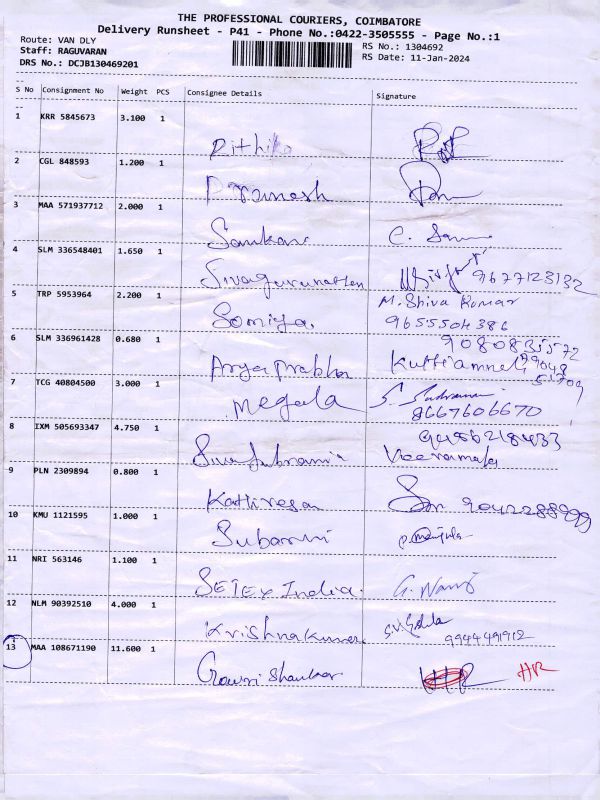 THE PROFESSIONAL COURIERS, COIMBATORE
Delivery Runsheet - P41 - Phone No.:0422-3505555 - Page No.:1
Route: VAN DLY
Staff: RAGUVARAN
DRS No.: DCJB130469201
RS No.: 1304692
RS Date: 11-Jan-2024
S No Consignment No Weight PCS Consignee Details Signature
1 KRR 5845673 3.100 1
Rithik
2 CGL 848593 1.200 1
Pramesh
3 MAA 571937712 2.000 1
Sankar C.
4 SLM 336548401 1.650 1
Sivagurunathan 9677123132
5 TRP 5953964 2.200 1 M. Shiva Kumar
Somiya. 9655504386
6 SLM 336961428 0.680 1 9080835572
Aryaprabha
7 TCG 40804500 3.000 1
Megala S. 8667606670
8 IXM 505693347 4.750 1
Sivasubramani Veeramala
9 PLN 2309894 0.800 1
Kathiresan
10 KMU 1121595 1.000 1
Subarni P. Manjula
11 NRI 563146 1.100 1
SETEX India. G.
12 NLM 90392510 4.000 1
Krishnakumar 9944491912
13 MAA 108671190 11.600 1
Gowri Shankar HR